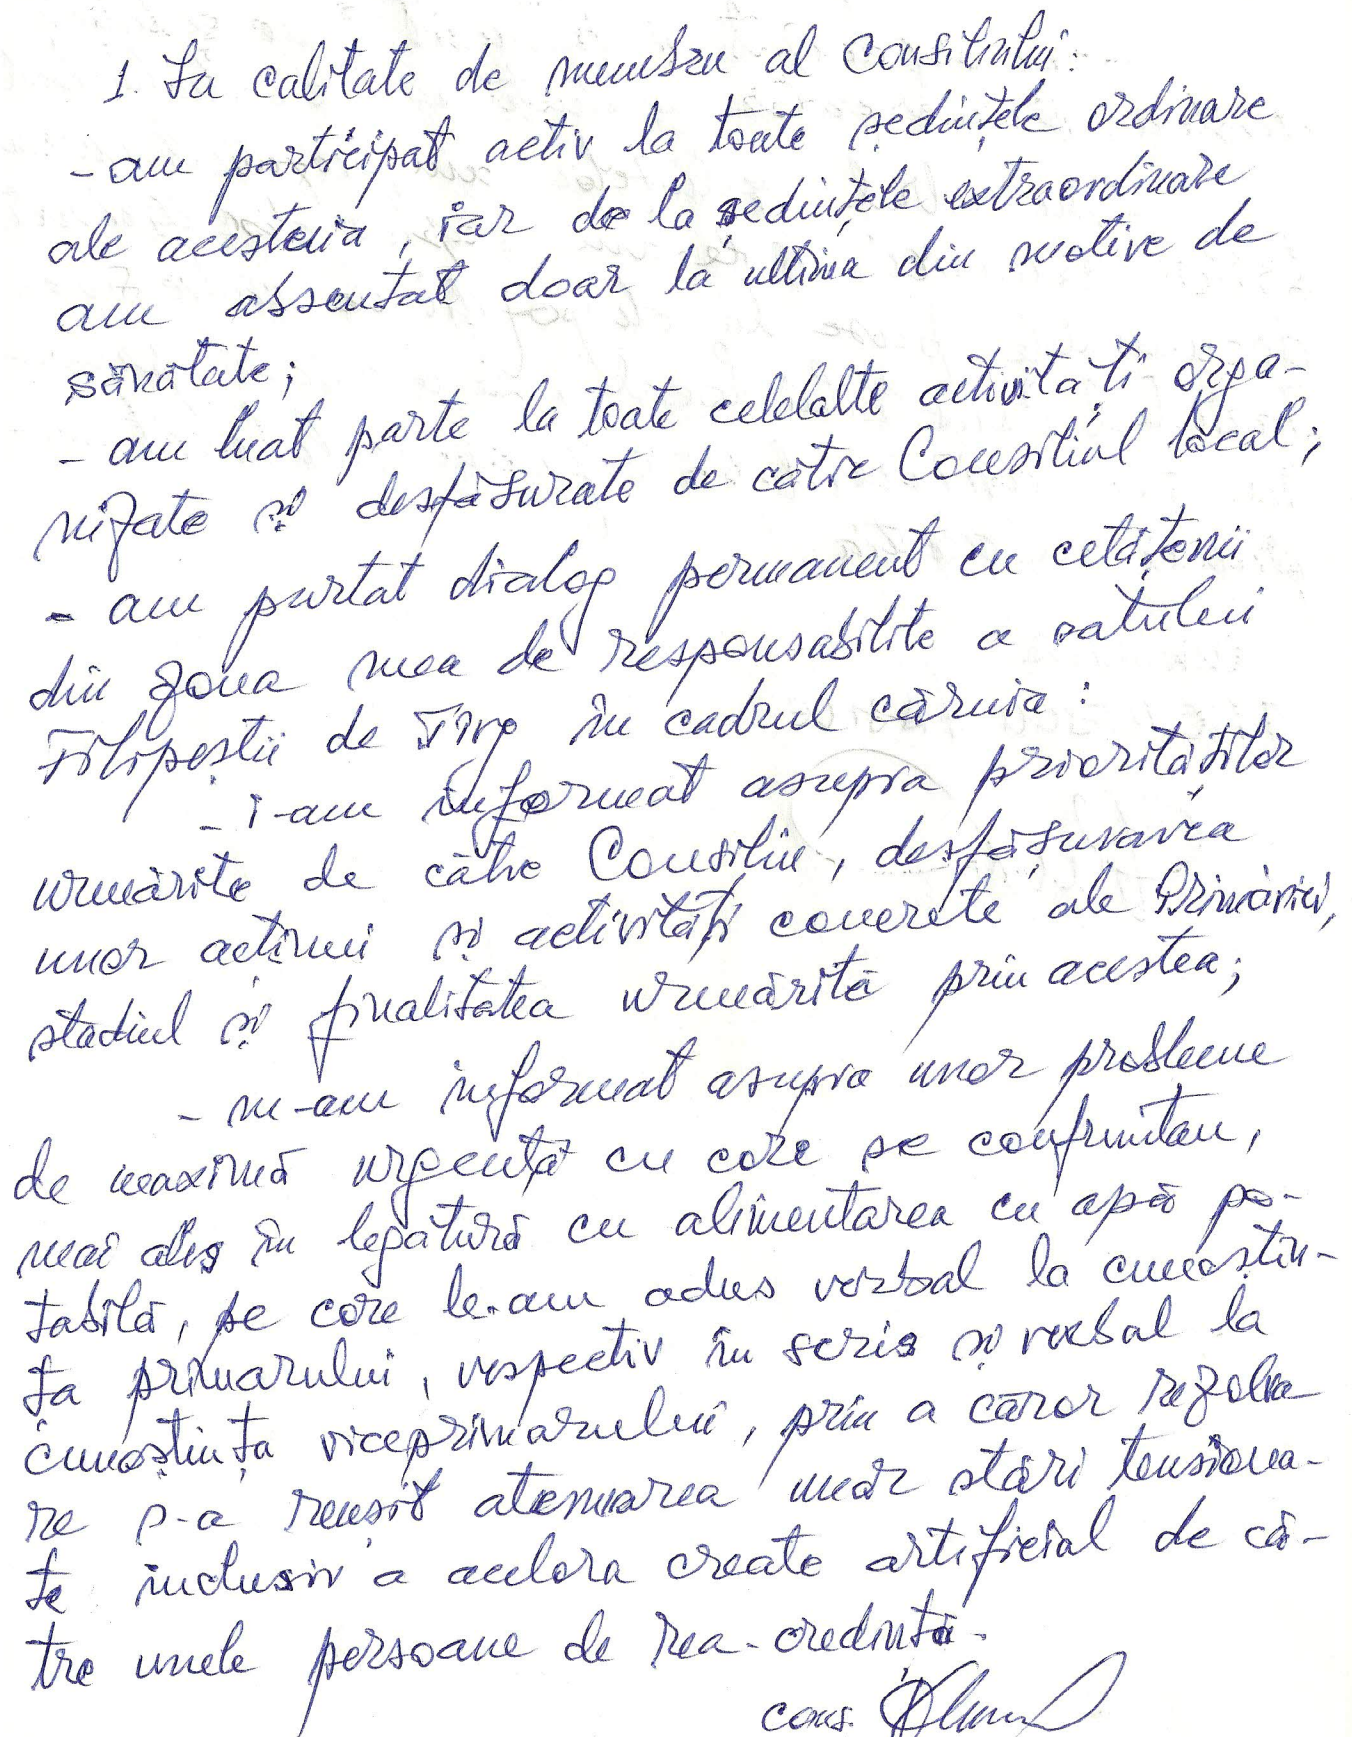 1. În calitate de membru al Consiliului:
- am participat activ la toate ședințele ordinare
ale acestuia, iar de la ședințele extraordinare
am absentat doar la ultima din motive de
sănătate;
- am luat parte la toate celelalte activități orga-
nizate și desfășurate de către Consiliul local;
- am purtat dialog permanent cu cetățenii
din zona mea de responsabilite a satului
Filipeștii de Tîrg în cadrul căruia:
- i-am informat asupra priorităților
urmărite de către Consiliu, desfășurarea
unor acțiuni și activități concrete ale Primăriei,
stadiul și finalitatea urmărită prin acestea;
- m-am informat asupra unor probleme
de maximă urgență cu care se confruntau,
mai ales în legătură cu alimentarea cu apă po-
tabilă, pe care le-am adus verbal la cunoștin-
ța primarului, respectiv în scris și verbal la
cunoștința viceprimarului, prin a căror rezolva
re s-a reușit atenuarea unor stări tensiona-
te inclusiv a acelora create artificial de că-
tre unele persoane de rea-credință.
cons.